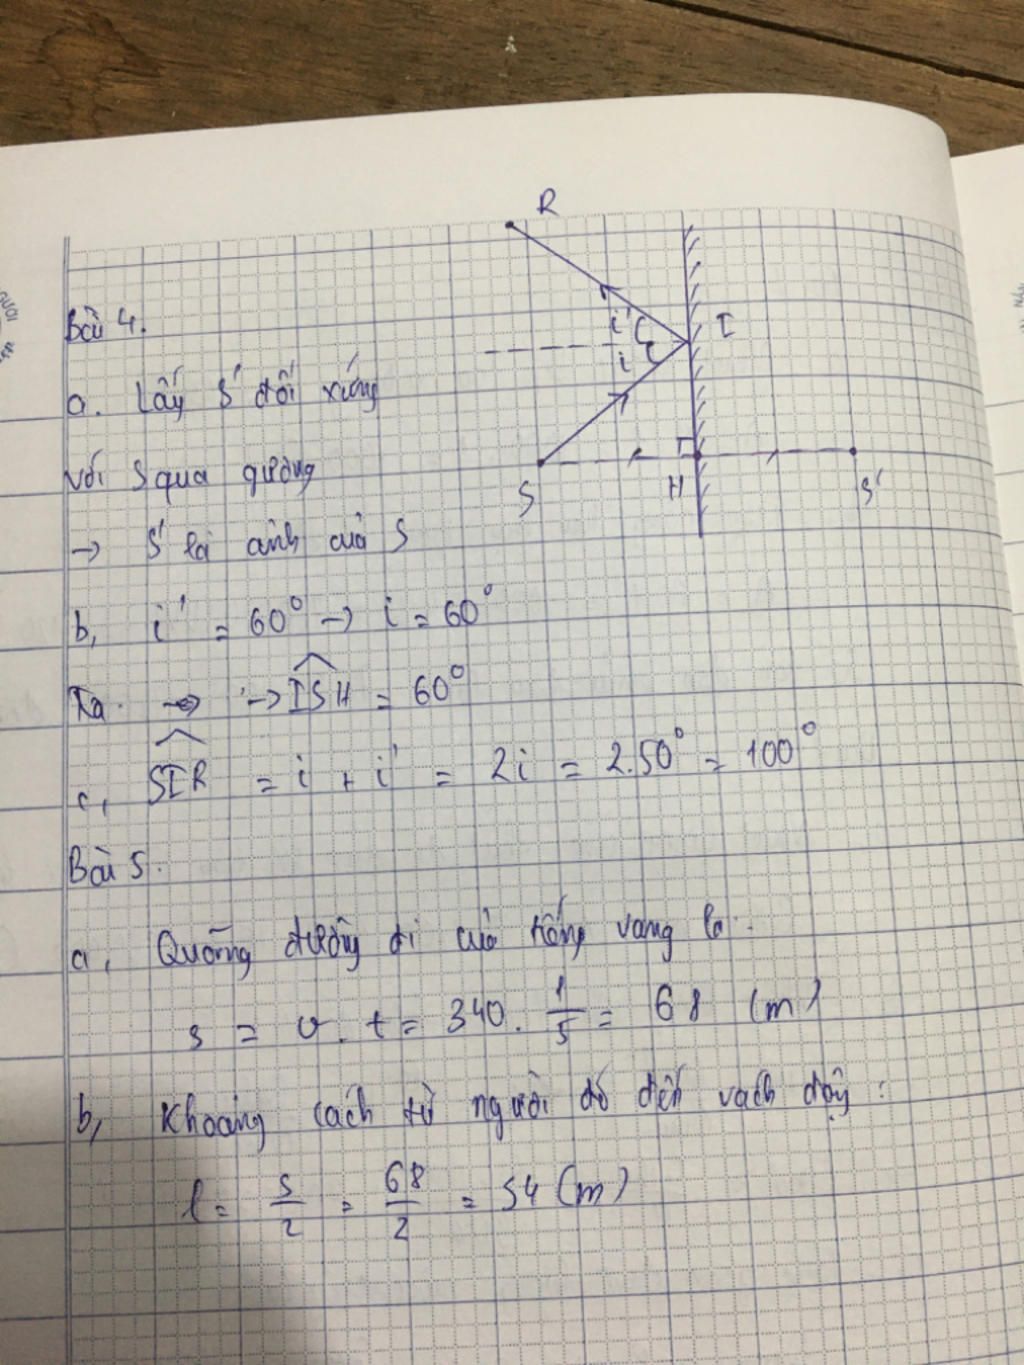 R
Bài 4.
i'
I
i
a. Lấy S' đối xứng
với S qua gương
S
H
S'
→ S' là ảnh của S
b, i' = 60° → i = 60°
→ ISH = 60°
c, SIR = i + i' = 2i = 2.50° = 100°
Bài 5.
a, Quãng đường đi của tiếng vang là.
s = v. t = 340. 1/5 = 68 (m)
b, Khoảng cách từ người đó đến vách đậy:
l = s/2 = 68/2 = 54 (m)